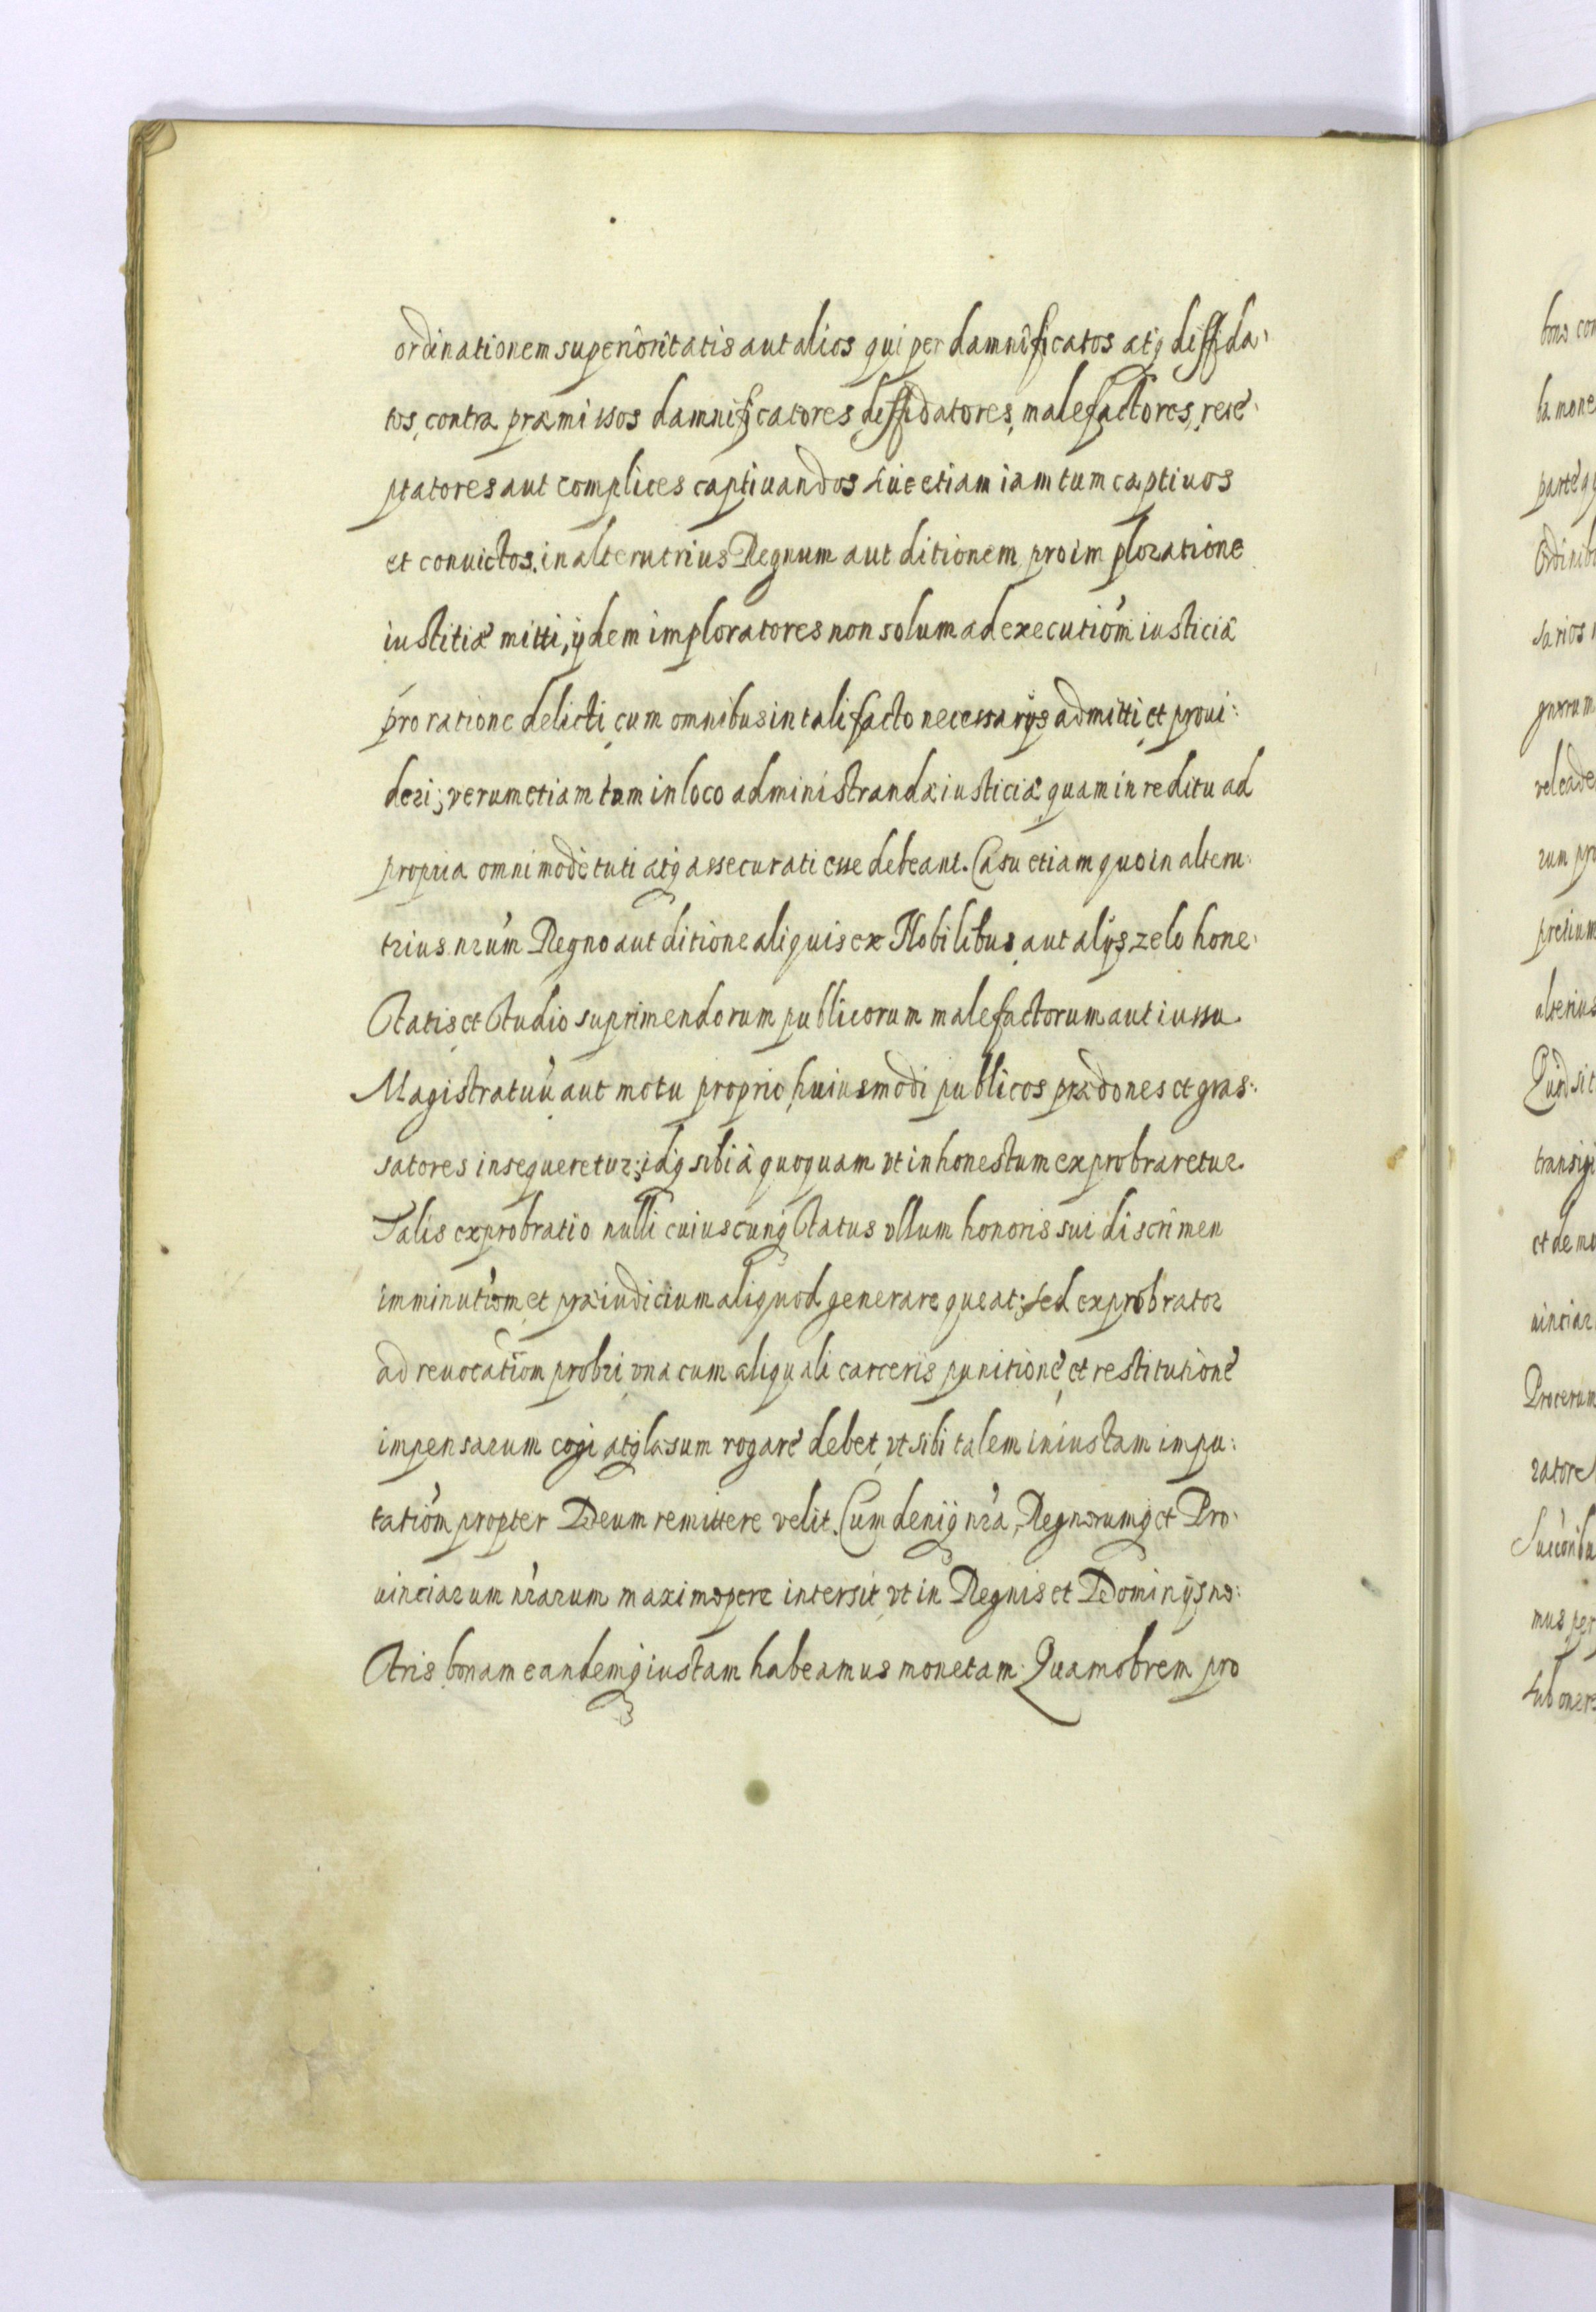 ordinationem superioritatis aut alios qui per damnificatos atq diffida:
tos, contra præmissos damnificatores, diffidatores, malefactores, rece:
ptatores aut complices captiuandos siue etiam iam tum captiuos
et conuictos, in alterutrius Regnum aut ditionem pro imploratione
iustitiæ mitti, ijdem imploratores non solum ad executiom̃ iusticiæ
pro ratione delicti cum omnibus in tali facto necessarijs admitti et proui:
deri; verum etiam tam in loco administrandæ iusticiæ quam in reditu ad
propria omnimodè tuti atq assecurati esse debeant. Casu etiam quo in alteru:
trius nrũm Regno aut ditione aliquis ex Nobilibus aut alijs zelo hone:
statis et studio suprimendorum publicorum malefactorum aut iussu
Magistratuũ aut motu proprio huiusmodi publicos prædones et gras:
satores insequeretur; idq sibi à quoquam vt inhonestum exprobraretur.
Talis exprobratio nulli cuiuscunq status vllum honoris sui discrimen
imminutiom̃ et præiudicium aliquod generare queat; sed exprobrator
ad reuocatiom̃ probri vna cum aliquali carceris punitionẽ et restitutionẽ
impensarum cogi atq læsum rogarẽ debet, vt sibi talem iniustam impu:
tatiom̃ propter Deum remittere velit. Cum deniq nrã, Regnorumq et Pro:
uinciarum nrãrum maximopere intersit, vt in Regnis et Dominijs no:
stris bonam eandemq iustam habeamus monetam. Quamobrem pro